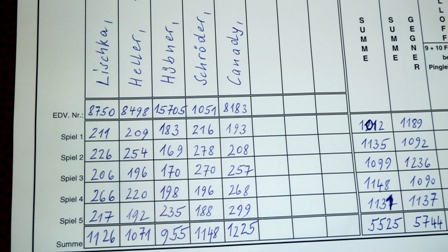 Lischka, Heller, Hübner, Schröder, Canady,
SUMME SUMME GEGNER
9 + 10 F
be
Pingle
EDV. Nr.: 8750 8498 15705 1051 8183
Spiel 1 211 209 183 216 193 1012 1189
Spiel 2 226 254 169 278 208 1135 1092
Spiel 3 206 196 170 270 257 1099 1236
Spiel 4 266 220 198 196 268 1148 1090
Spiel 5 217 192 235 188 299 1131 1137
Summe 1126 1071 955 1148 1225 5525 5744